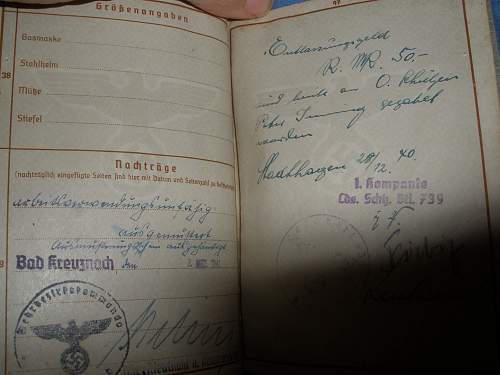 Größenangaben
Gasmaske
Stahlhelm
38
Mütze
Stiefel
Nachträge
(nachträglich eingefügte Seiten sind hier mit Datum und Seitenzahl zu
arbeitsverwendungsunfähig
ausgemustert
Ausmusterungsschein ausgehändigt
Bad Kreuznach den
Wehrbezirkskommando
Entlassungsgeld
R. MK. 50.-
und heute an O. Schützen
Peter gezahlt
worden
Stadthagen 28/12. 40.
1. Kompanie
Lds. Schtz. Btl. 739